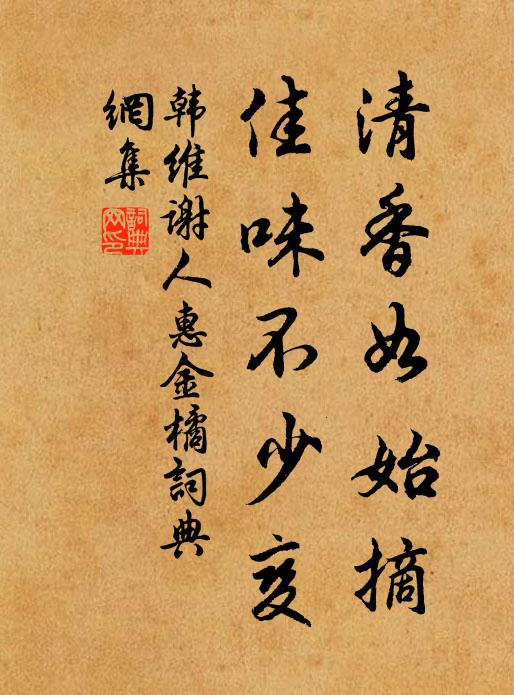 清香如始摘
佳味不少变
韩维谢人惠金橘詞典
網集
詞典网印